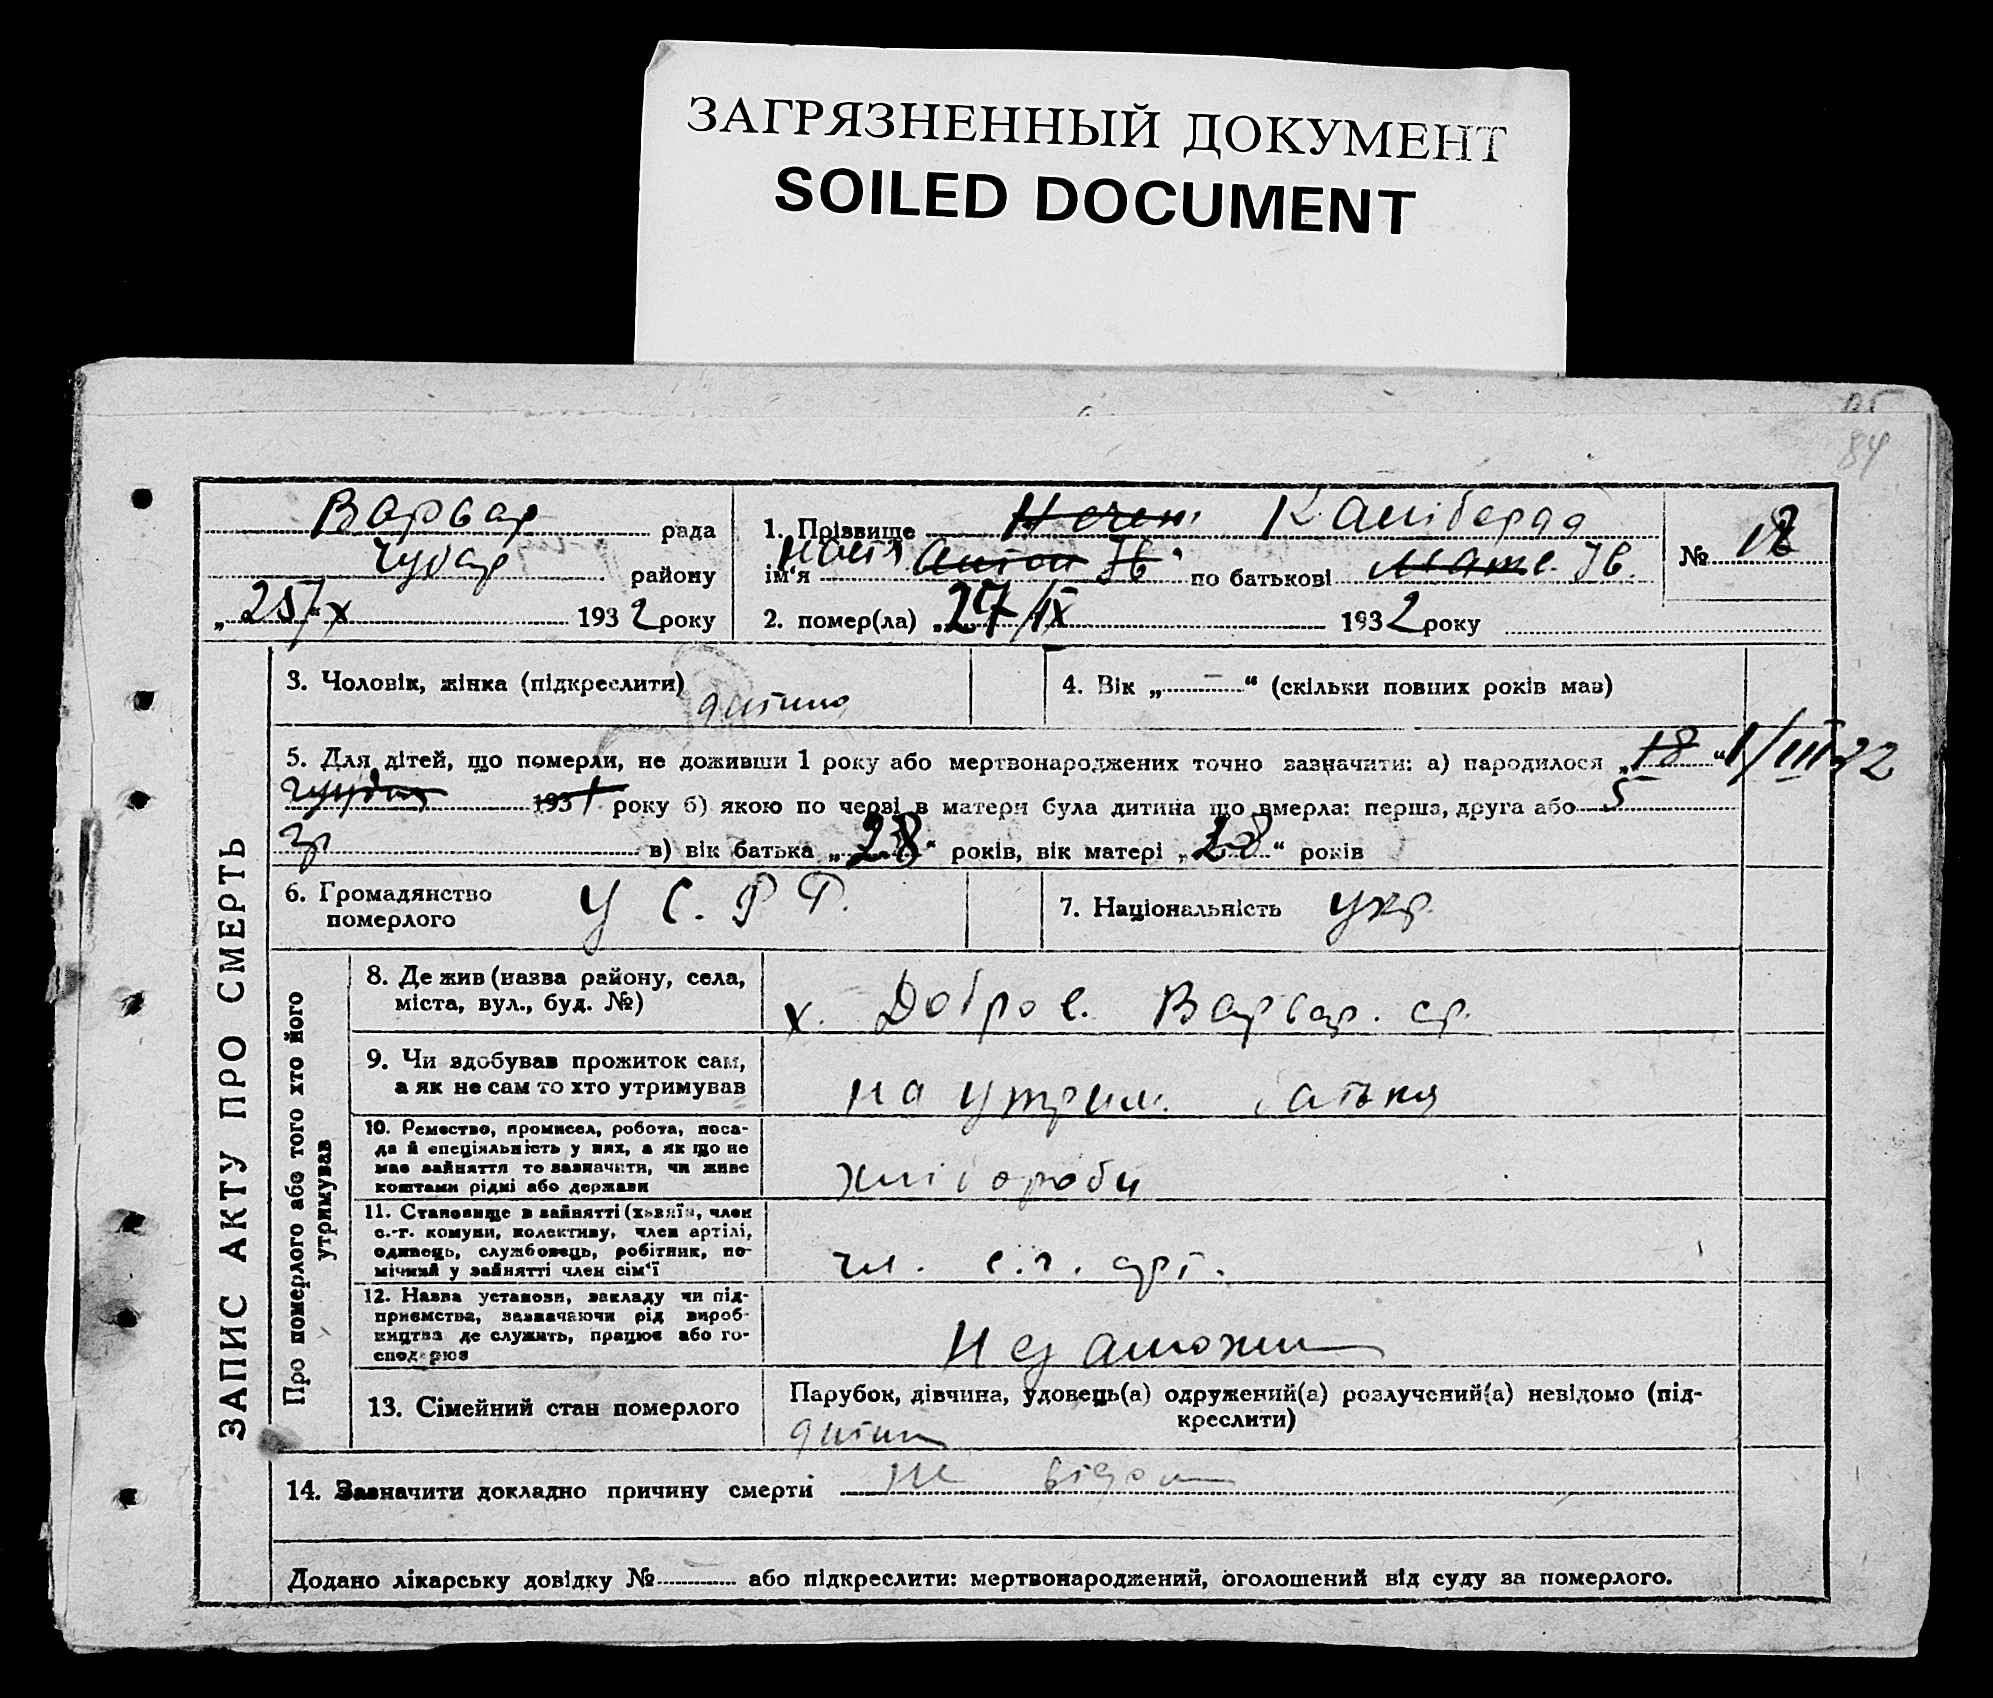 ЗАГРЯЗНЕННЫЙ ДОКУМЕНТ
SOILED DOCUMENT
84
Варвар рада
Чубар району
„25/“ х 1932 року
1. Прізвище Каліберда
ім‘я Ів по батькові Ів.
2. помер(ла) „27/IX 1932 року
№ 18
ЗАПИС АКТУ ПРО СМЕРТЬ
3. Чоловік, жінка (підкреслити) дитина
4. Вік „ – “ (скільки повних років мав)
5. Для дітей, що померли, не доживши 1 року або мертвонароджених точно зазначити: а) народилося „18“ 1/III 32
грудня 1931 року б) якою по черві в матери була дитина що вмерла: перша, друга або 5
в) вік батька „28“ років, вік матері „28“ років
6. Громадянство
померлого
У С. Р Р.
7. Національність укр.
Про померлого або того хто його
утримував
8. Де жив (назва району, села,
міста, вул., буд. №)
х. Доброе. Варвар. ср.
9. Чи здобував прожиток сам,
а як не сам то хто утримував
на утрим. батька
10. Ремество, промисел, робота, поса-
да й спеціяльність у них, а як що не
має зайняття то зазначити, чи живе
коштами рідні або держави
хлібороби
11. Становище в зайнятті (хазяїн, член
с.-г. комуни, колективу, член артілі,
одинець, службовець, робітник, по-
мічний у зайнятті член сім‘ї
чл. с.г. арт.
12. Назва установи, закладу чи під-
приємства, зазначаючи рід вироб-
ництва де служить, працює або го-
сподарює
Незаможн
13. Сімейний стан померлого
Парубок, дівчина, удовець(а) одружений(а) розлучений(а) невідомо (під-
креслити)
дитин
14. Зазначити докладно причину смерті Не відом
Додано лікарську довідку № або підкреслити: мертвонароджений, оголошений від суду за померлого.